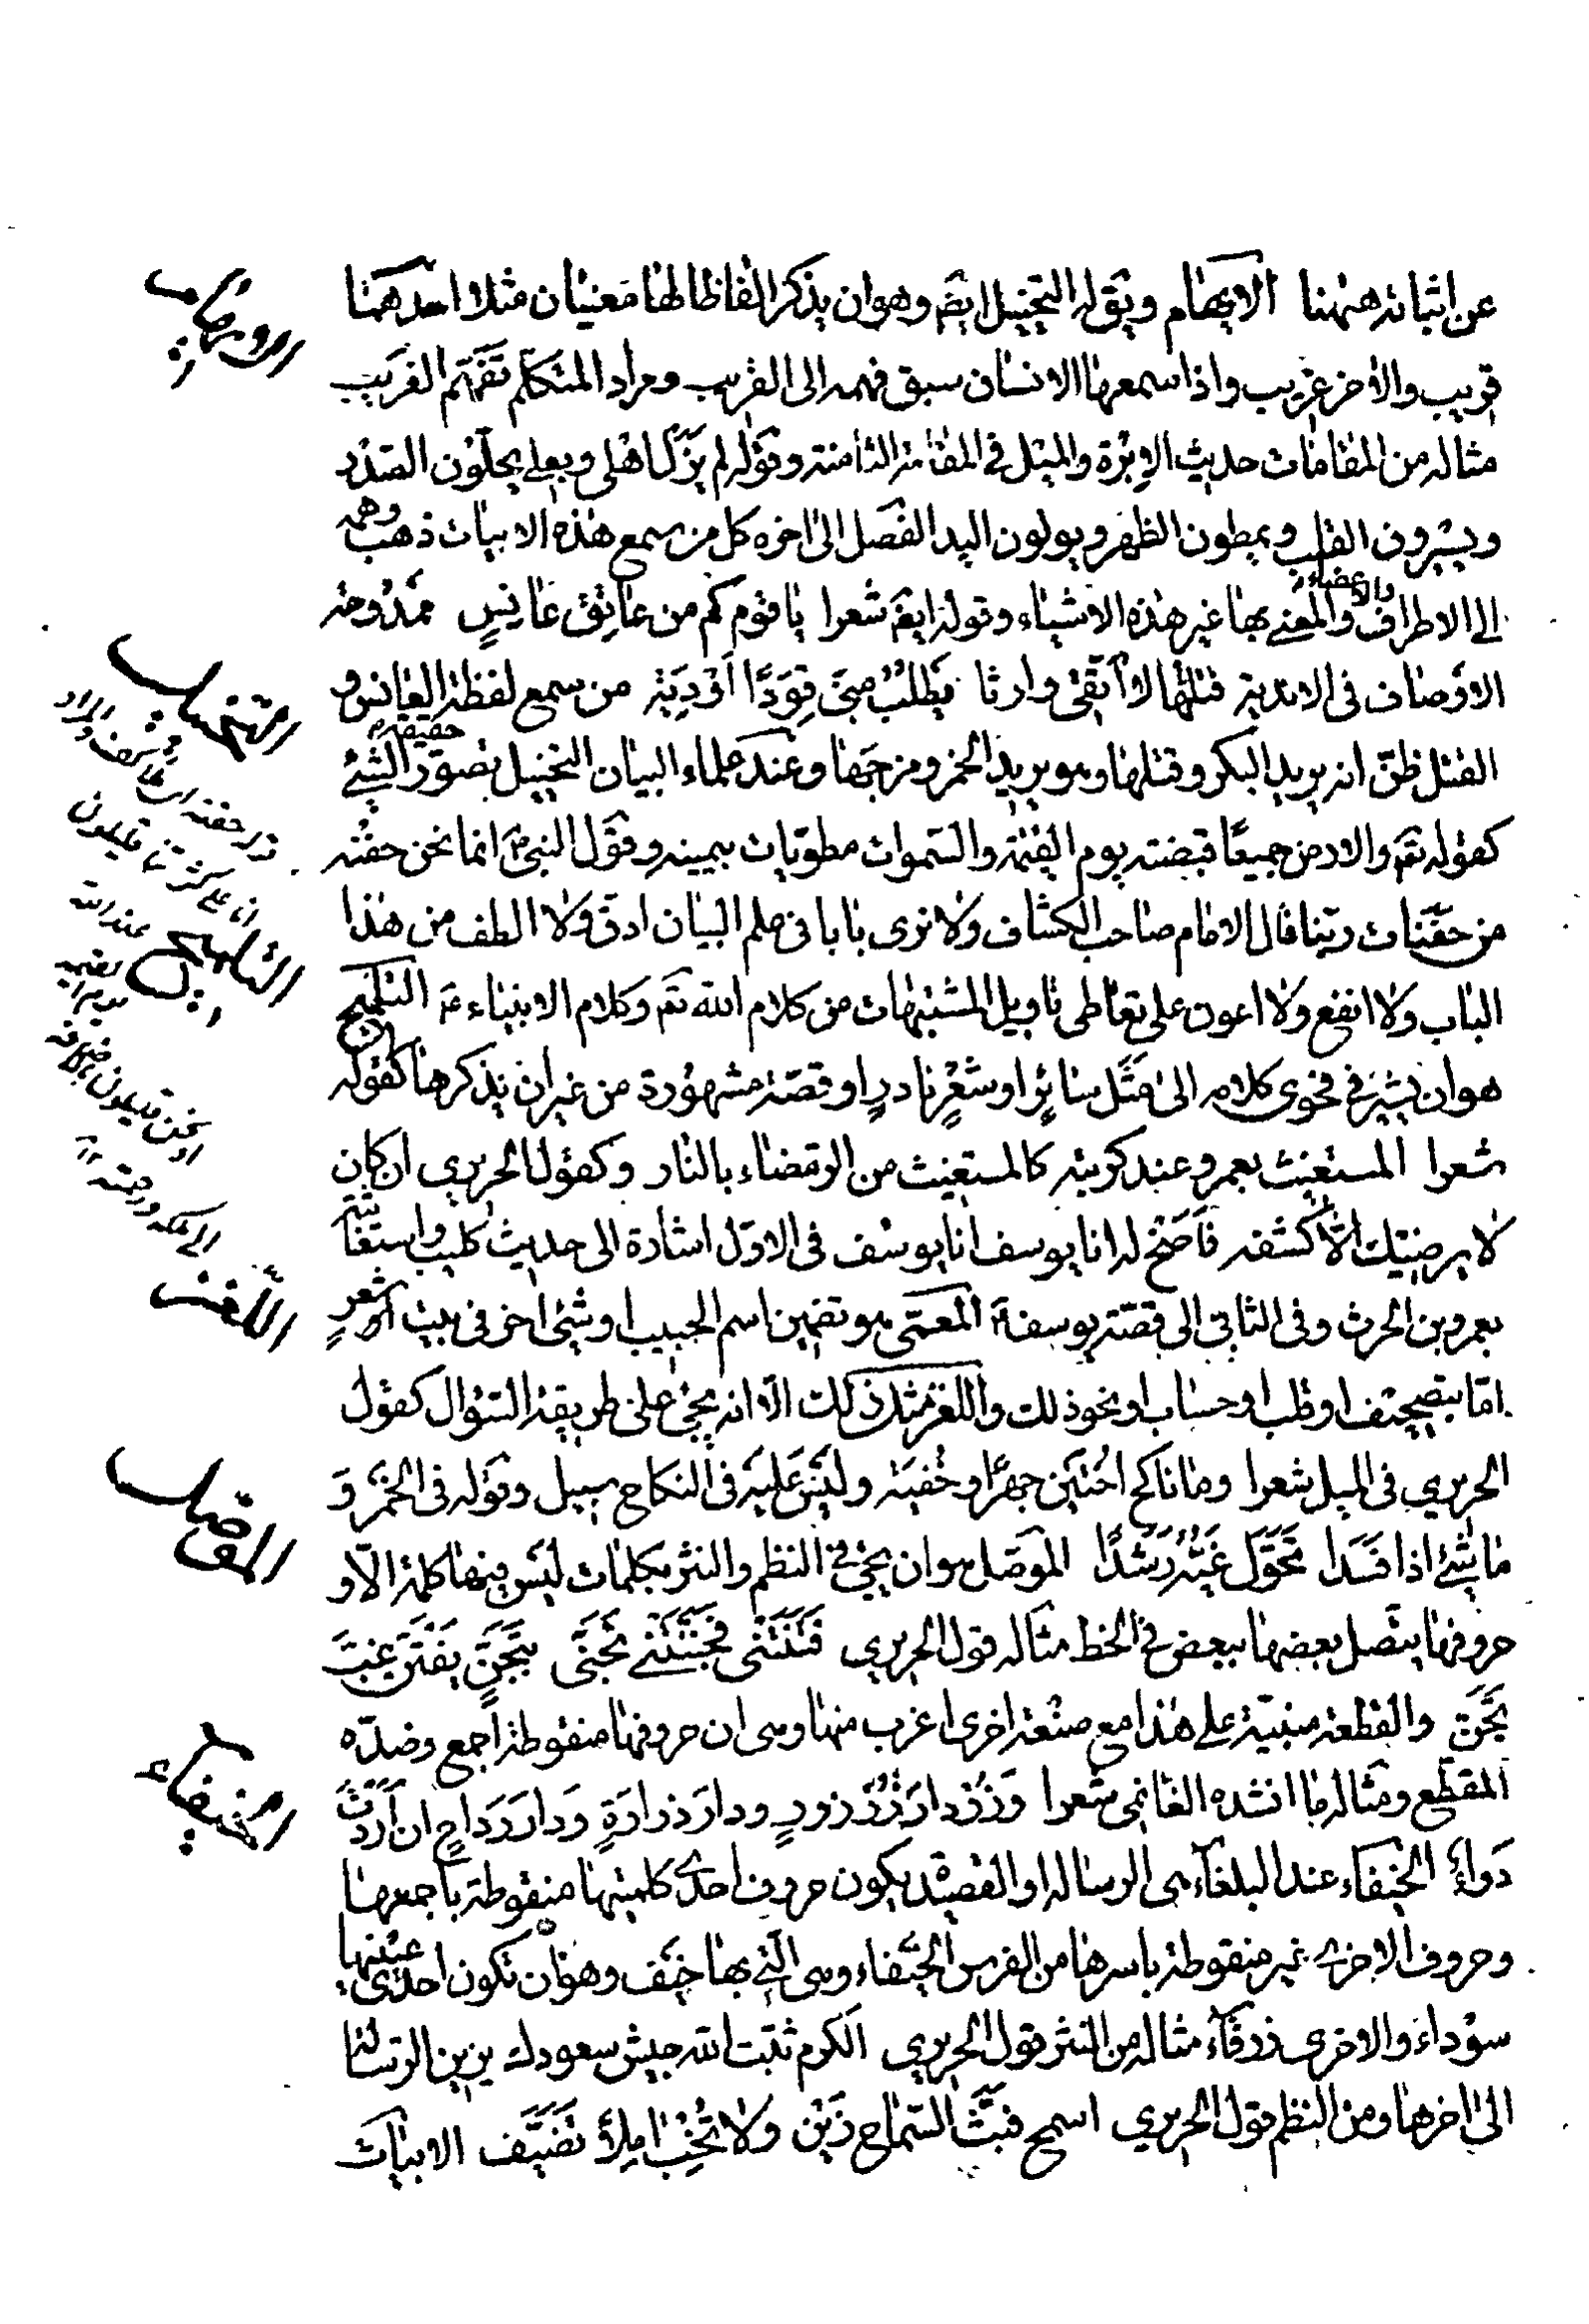 عن اثباته ههنا الايهام ويقوله التخييل ايضم وهو ان يذكر الفاظا لها معنيان مثلا احدهما
قريب والاخر غريب واذا سمعها الانسان سبق فهمه الى القريب ومراد المتكلم تفهم الغريب
مثاله من المقامات حديث الابرة والميل في المقامة الثامنة وقوله لم يزل اهلى وبعلى يحلون الصدر
ويسيرون القلب ويمطون الظهر ويولون اليد الفصل الى اخره كل من سمع هذه الابيات ذهب وهمه
الى الاطراف والاعضاء والمعنى بها غير هذه الاشياء وقوله ايضم شعرا يا قوم كم من عاتق عانس ممدوحة
الاوصاف في الاندية قتلتها لا اتقى وارثا يطلب منى قودا او دية من سمع لفظة العانس و
القتل ظن انه يريد البكر وقتلها وهو يريد الخمر ومزجها وعند علماء البيان التخييل تصوير حقيقة الشئ
كقوله تعم والارض جميعا قبضته يوم القيمة والسموات مطويات بيمينه وقول النبي انما نحن حفنة
من حفنات ربنا قال الامام صاحب الكشاف ولا نرى بابا في علم البيان ادق ولا الطف من هذا
الباب ولا انفع ولا اعون على تعاطى تاويل المشتبهات من كلام الله تعم وكلام الانبياء التلميح
هو ان يشير في فحوى كلامه الى مثل سائر او شعر نادر او قصة مشهورة من غير ان يذكرها كقوله
شعرا المستغيث بعمرو عند كربته كالمستغيث من الرمضاء بالنار وكقول الحريري ان كان
لا يرضيك الا كشفه فاصخ له انا يوسف انا يوسف في الاول اشارة الى حديث كليب واستغاثته
بعمرو بن الحرث وفي الثاني الى قصة يوسف المعمى هو تضمين اسم الحبيب او شئ اخر في بيت شعر
اما بتصحيف او قلب او حساب او نحو ذلك واللغز مثل ذلك الا انه يجئ على طريقة السؤال كقول
الحريري في الميل شعرا وما ناكح اختين جهرا وخفية وليس عليه في النكاح سبيل وقوله في الخمر و
ما شئ اذا فسدا تحول غيه رشدا الموصل هو ان يجئ في النظم والنثر بكلمات ليس فيها كلمة الا و
حروفها يتصل بعضها ببعض في الخط مثاله قول الحريري فتنتنى فجننتنى تجنى بتجن يفتن غب
تجن والقطعة مبنية على هذا مع صنعة اخرى اغرب منها وهي ان حروفها منقوطة اجمع وضده
المقطع ومثاله ما انشده الغانمى شعرا وزر دار زرزور ودار زرارة ودار رداح ان اردت
دواء الخيفاء عند البلغاء هي الرسالة او القصيدة يكون حروف احدى كلمتيها منقوطة باجمعها
وحروف الاخرى غير منقوطة باسرها من الفرس الخيفاء وهي التى بها خيف وهو ان تكون احدى عينيها
سوداء والاخرى زرقاء مثاله من النثر قول الحريري الكرم ثبت الله جيش سعودك يزين الرسالة
الى اخرها ومن النظم قول الحريري اسمح فبث السماح زين ولا تخب املا تضيف الابيات
التخييل
التلميح
اللغز
الموصل
الخيفاء